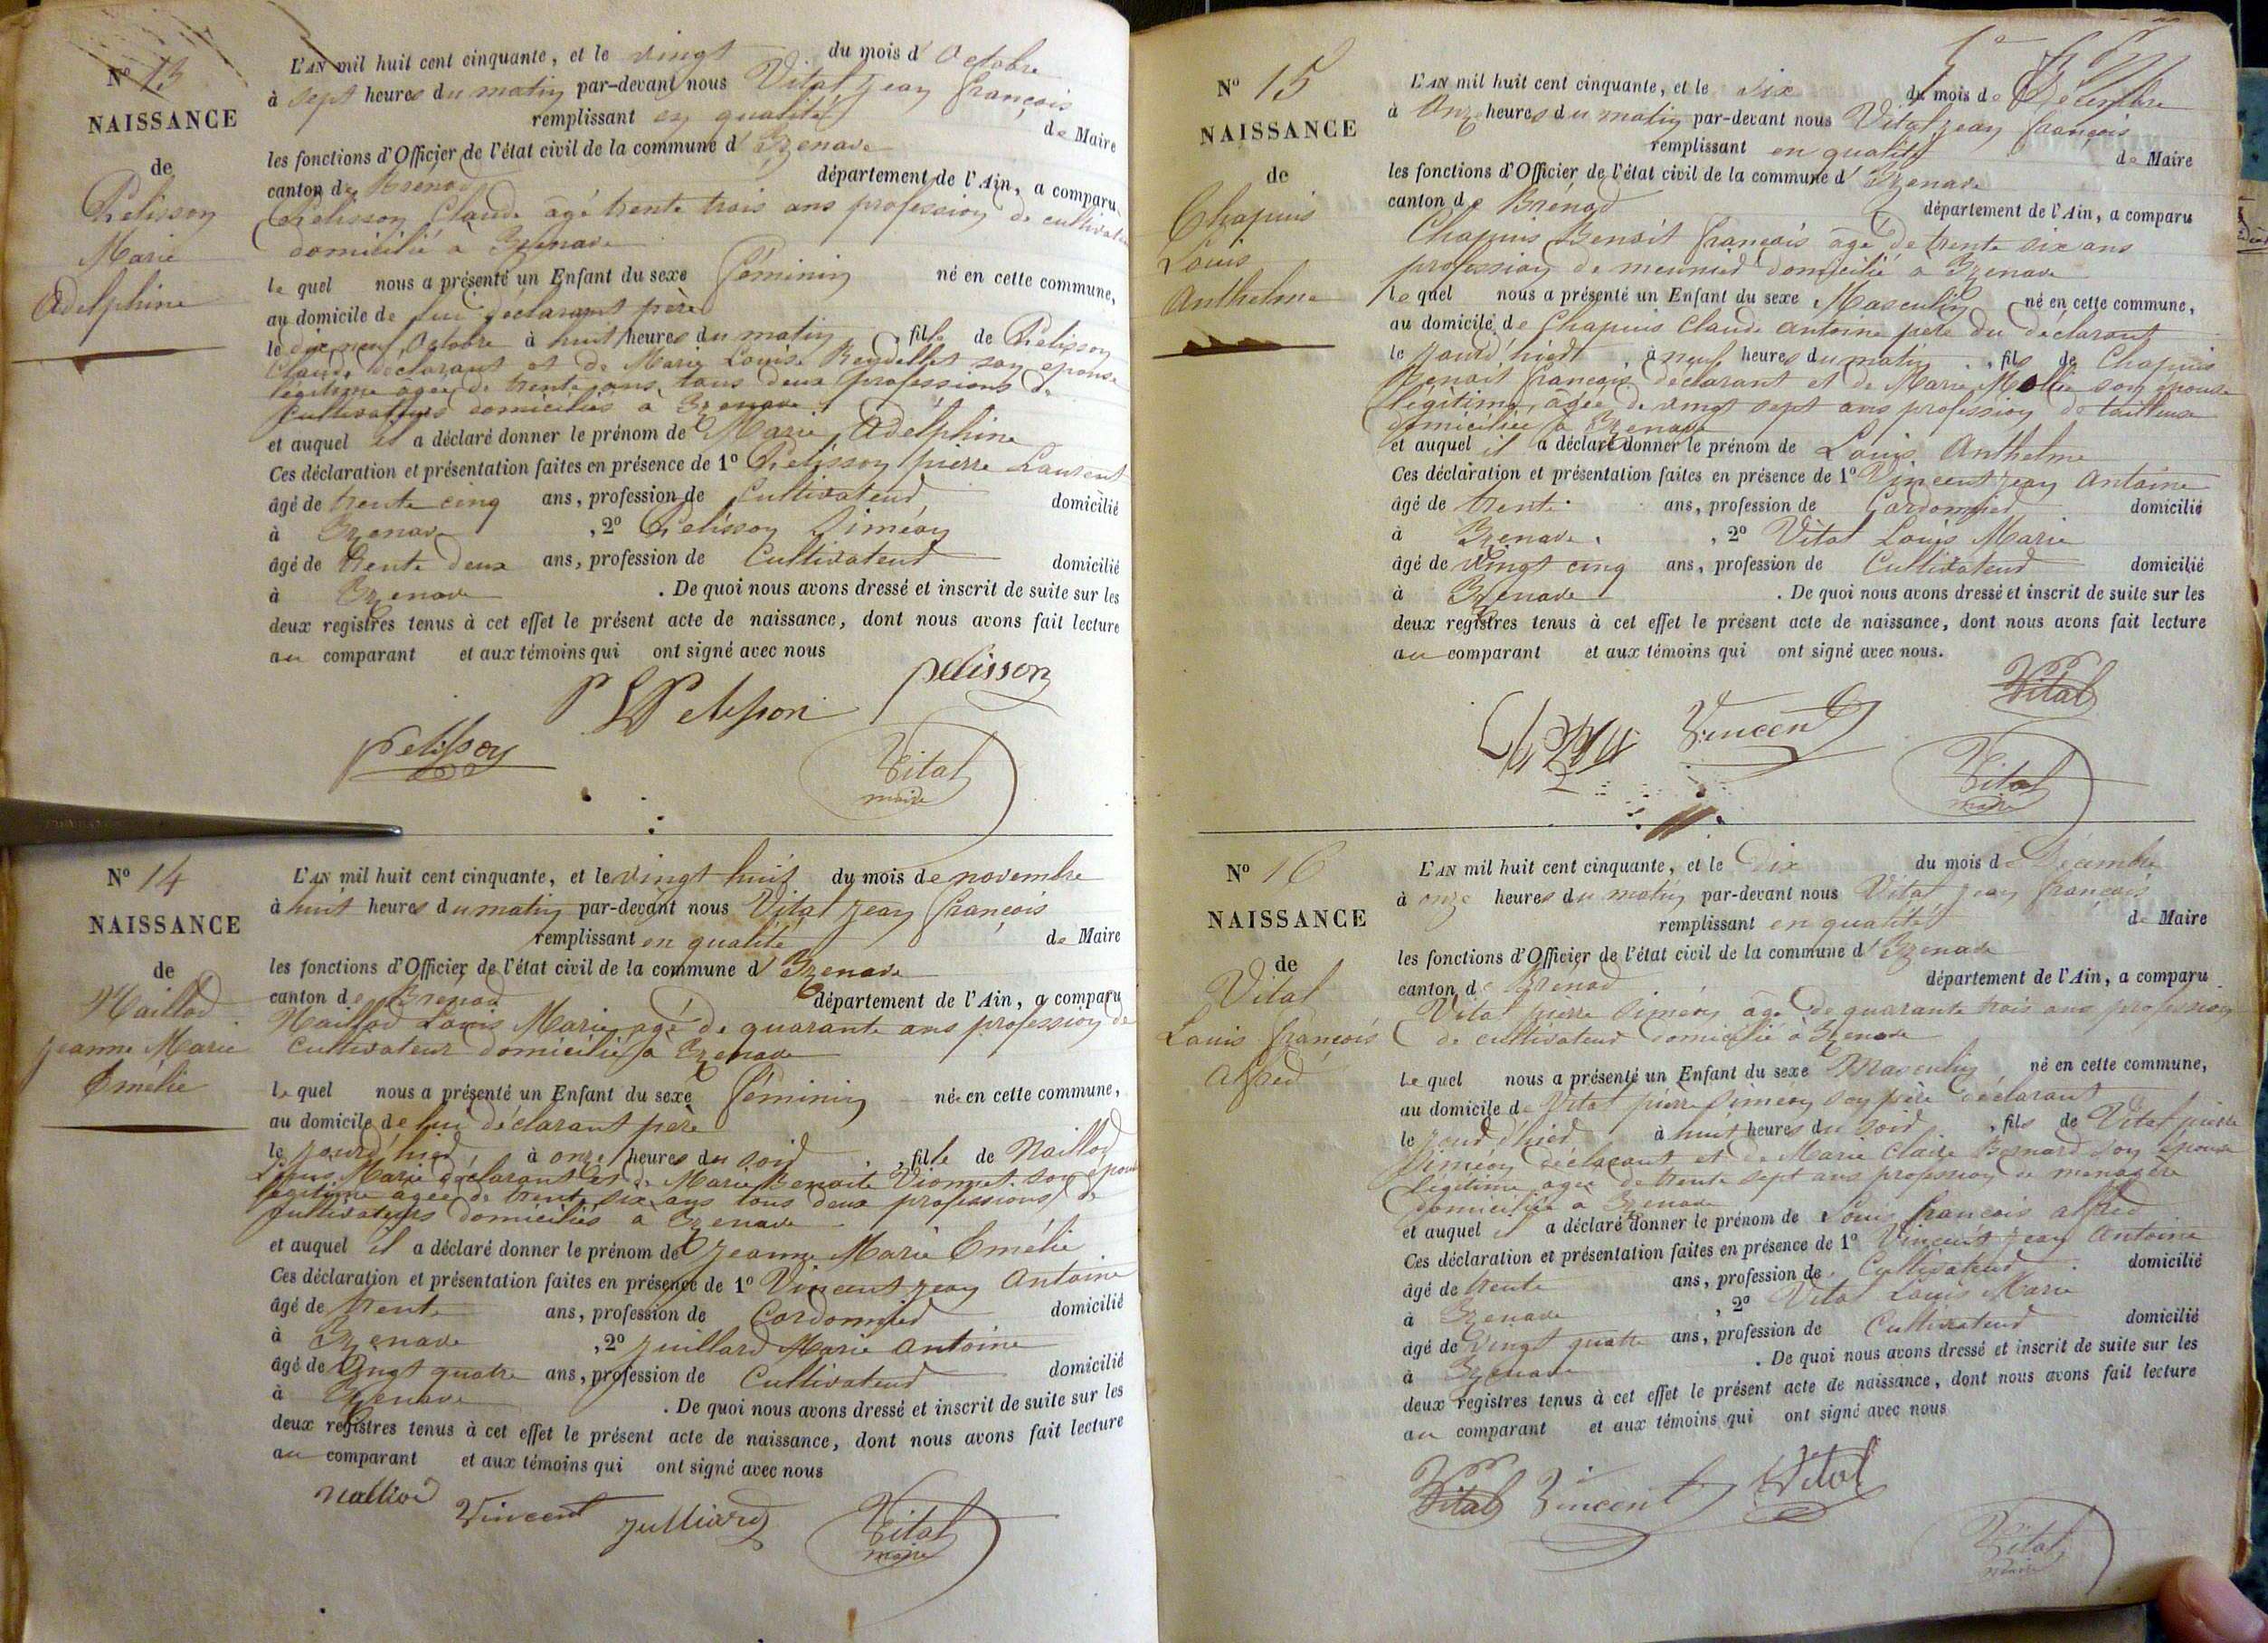 Nº 13
NAISSANCE
de
Pelisson
Marie
Adelphine
L'AN mil huit cent cinquante, et le vingt du mois d'Octobre
à sept heures du matin par-devant nous Vital jean françois
remplissant en qualité de Maire
les fonctions d'Officier de l'état civil de la commune d'Izenave
canton de Brénod département de l'Ain, a comparu
Pelisson Claude âgé trente trois ans profession de cultivateur
domicilié à Izenave
le quel nous a présenté un Enfant du sexe féminin né en cette commune,
au domicile de lui déclarant père
le dix neuf Octobre à huit heures du matin, fille de Pelisson
Claude déclarant et de Marie Louise Reydellet son épouse
légitime âgée de trente ans tous deux professions de
cultivateurs domiciliés à Izenave
et auquel il a déclaré donner le prénom de Marie Adelphine
Ces déclaration et présentation faites en présence de 1º Pelisson pierre Laurent
âgé de trente cinq ans, profession de Cultivateur domicilié
à Izenave, 2º Pelisson Siméon
âgé de trente deux ans, profession de Cultivateur domicilié
à Izenave. De quoi nous avons dressé et inscrit de suite sur les
deux registres tenus à cet effet le présent acte de naissance, dont nous avons fait lecture
au comparant et aux témoins qui ont signé avec nous
pelisson
P L Pelisson
pelisson
Vital
maire
Nº 14
NAISSANCE
de
Naillod
jeanne Marie
Emélie
L'AN mil huit cent cinquante, et le vingt huit du mois de novembre
à huit heures du matin par-devant nous Vital jean françois
remplissant en qualité de Maire
les fonctions d'Officier de l'état civil de la commune d'Izenave
canton de Brénod département de l'Ain, a comparu
Naillod Louis Marie agé de quarante ans profession de
cultivateur domicilié à Izenave
le quel nous a présenté un Enfant du sexe féminin née en cette commune,
au domicile de lui déclarant père
le jourd'hier, à onze heures du soir, fille de Naillod
Louis Marie déclarant et de Marie Benoite Vionnet son épouse
légitime agée de trente six ans tous deux professions de
cultivateurs domiciliés à Izenave
et auquel il a déclaré donner le prénom de jeanne Marie Emélie
Ces déclaration et présentation faites en présence de 1º Vincent jean Antoine
âgé de trente ans, profession de Cordonnier domicilié
à Izenave, 2º juillard Marie Antoine
âgé de vingt quatre ans, profession de Cultivateur domicilié
à Izenave. De quoi nous avons dressé et inscrit de suite sur les
deux registres tenus à cet effet le présent acte de naissance, dont nous avons fait lecture
au comparant et aux témoins qui ont signé avec nous
naillod
Vincent
julliard
Vital
maire
Nº 15
NAISSANCE
de
Chapuis
Louis
Anthelme
L'AN mil huit cent cinquante, et le six du mois de Décembre
à Onze heures du matin par-devant nous Vital jean françois
remplissant en qualité de Maire
les fonctions d'Officier de l'état civil de la commune d'Izenave
canton de Brénod département de l'Ain, a comparu
Chapuis Benoit françois âgé de trente six ans
profession de meunier domicilié à Izenave
le quel nous a présenté un Enfant du sexe Masculin né en cette commune,
au domicile de Chapuis Claude antoine père du déclarant
le jourd'hier, à neuf heures du matin, fils de Chapuis
Benoit françois déclarant et de Marie Mollie son épouse
légitime, agée de vingt sept ans profession de tailleuse
domiciliée à Izenave
et auquel il a déclaré donner le prénom de Louis Anthelme
Ces déclaration et présentation faites en présence de 1º Vincent jean Antoine
âgé de trente ans, profession de Cordonnier domicilié
à Izenave, 2º Vital Louis Marie
âgé de vingt cinq ans, profession de Cultivateur domicilié
à Izenave. De quoi nous avons dressé et inscrit de suite sur les
deux registres tenus à cet effet le présent acte de naissance, dont nous avons fait lecture
au comparant et aux témoins qui ont signé avec nous.
Vital
Vincent
Vital
maire
Nº 16
NAISSANCE
de
Vital
Louis françois
Alfred
L'AN mil huit cent cinquante, et le Dix du mois de Décembre
à onze heures du matin par-devant nous Vital jean françois
remplissant en qualité de Maire
les fonctions d'Officier de l'état civil de la commune d'Izenave
canton de Brénod département de l'Ain, a comparu
Vital pierre Siméon agé de quarante trois ans profession
de cultivateur domicilié à Izenave
le quel nous a présenté un Enfant du sexe Masculin né en cette commune,
au domicile de Vital pierre Siméon son père déclarant
le jourd'hier à huit heures du soir, fils de Vital pierre
Siméon déclarant et de Marie Claire Bernard son épouse
légitime agée de trente sept ans profession de menagère
domiciliée à Izenave
et auquel il a déclaré donner le prénom de Louis françois alfred
Ces déclaration et présentation faites en présence de 1º Vincent jean Antoine
âgé de trente ans, profession de Cultivateur domicilié
à Izenave, 2º Vital Louis Marie
âgé de vingt quatre ans, profession de Cultivateur domicilié
à Izenave. De quoi nous avons dressé et inscrit de suite sur les
deux registres tenus à cet effet le présent acte de naissance, dont nous avons fait lecture
au comparant et aux témoins qui ont signé avec nous
Vital Vincent Vital
Vital
maire